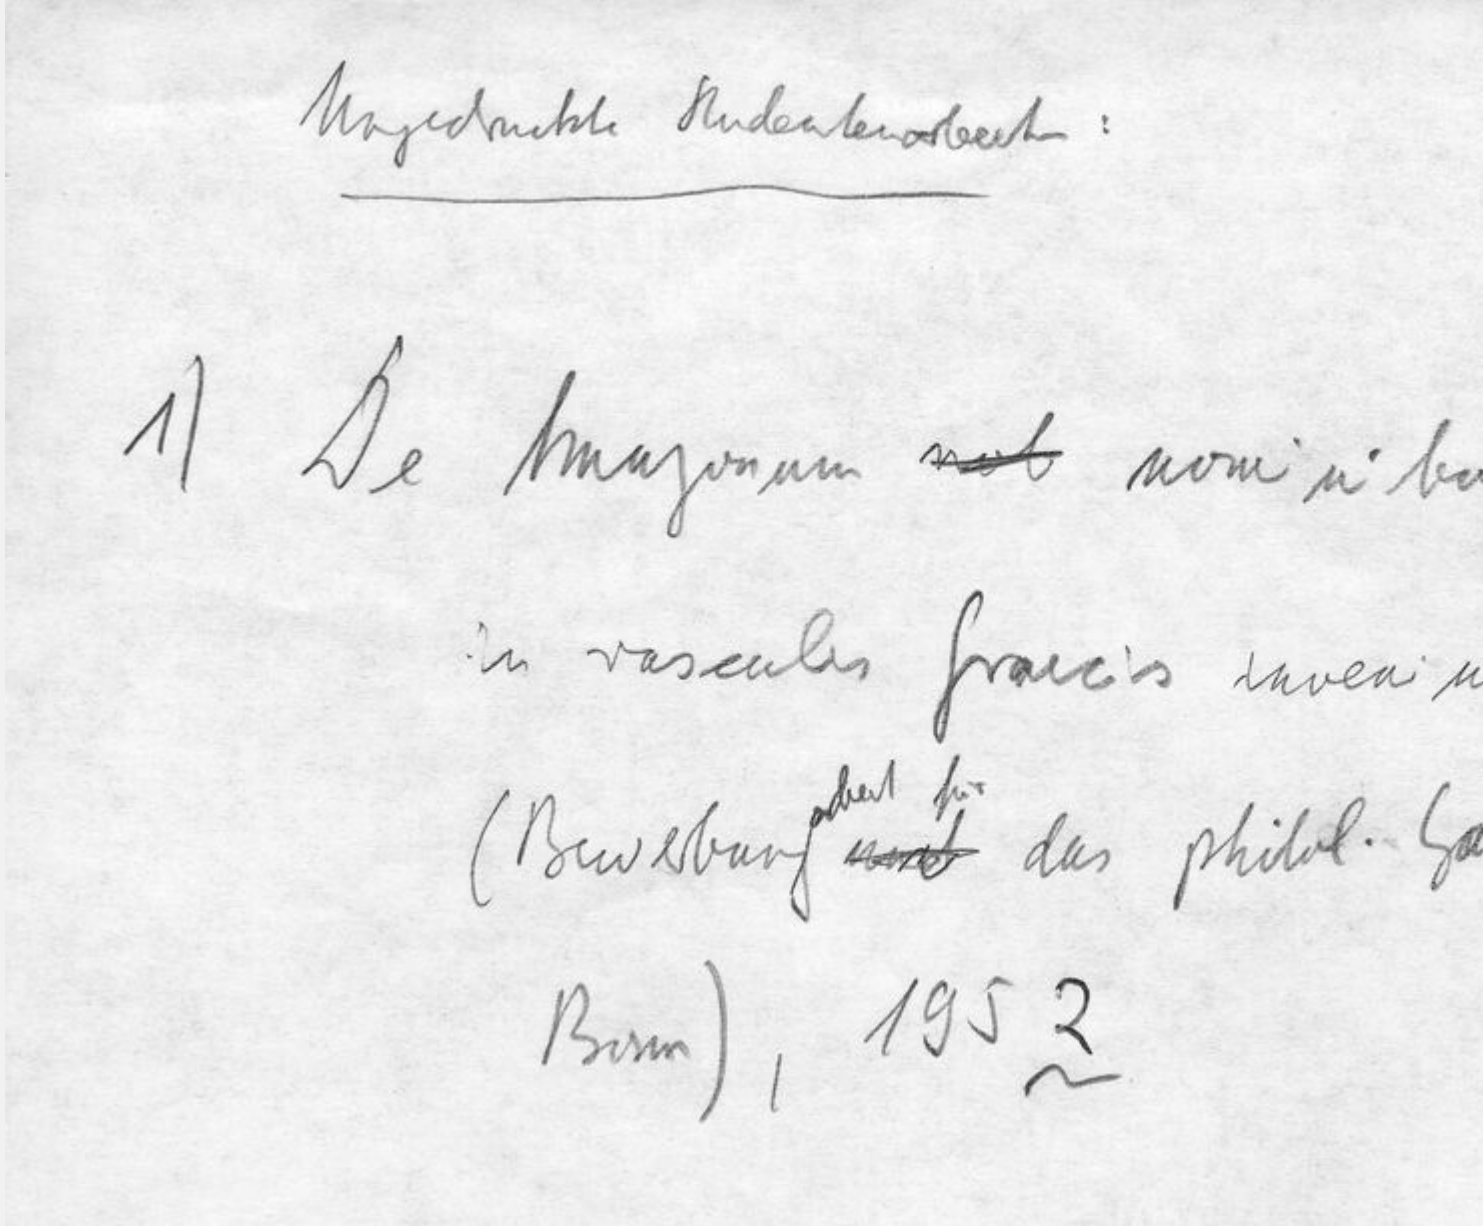 Ungedruckte Studentenarbeiten:
1) De Amazonum nomini bu
in vasculis Graecis inveni
(Bewerbungsarbeit für das philol. Se
Bonn), 1952